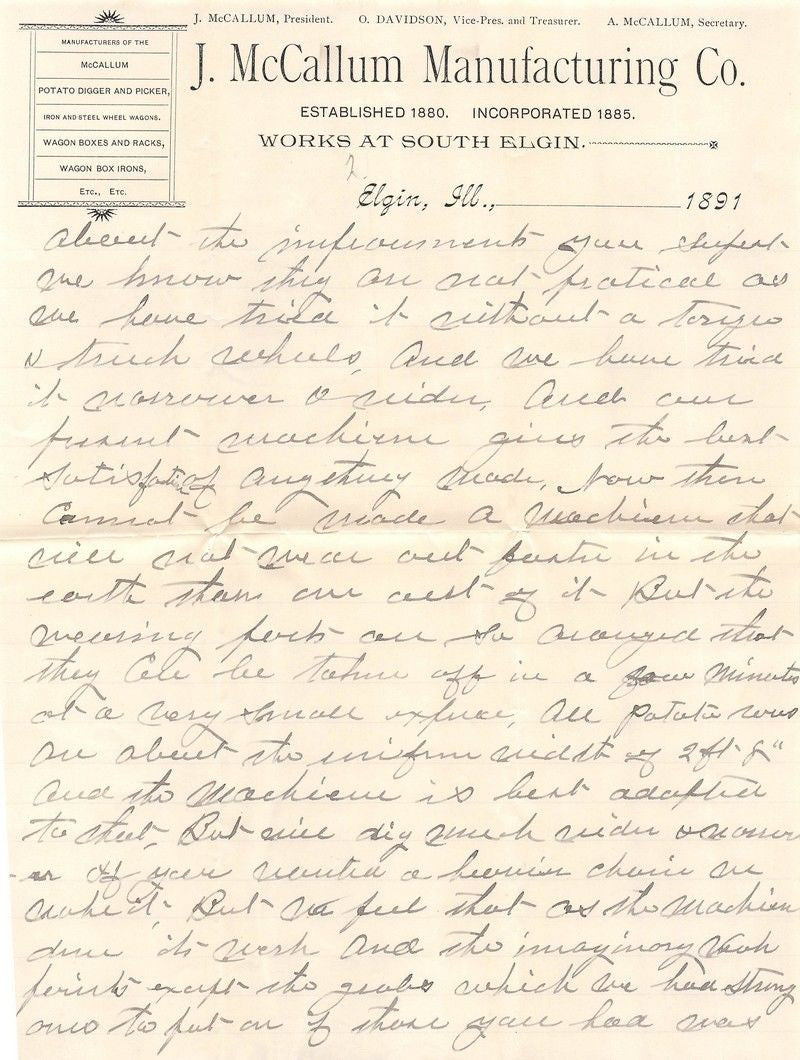 J. McCALLUM, President. O. DAVIDSON, Vice-Pres. and Treasurer. A. McCALLUM, Secretary.
MANUFACTURERS OF THE
McCALLUM
POTATO DIGGER AND PICKER,
IRON AND STEEL WHEEL WAGONS.
WAGON BOXES AND RACKS,
WAGON BOX IRONS,
ETC., ETC.
J. McCallum Manufacturing Co.
ESTABLISHED 1880. INCORPORATED 1885.
WORKS AT SOUTH ELGIN.
2
Elgin, Ill., 1891
about the improvments you sujest
we know they are not pratical as
we have tried it without a
truck wheels, And we have tried
it narrower & wider, And our
present machiene gives the best
satisfation of anything made, Now there
Cannot be made a Machiene that
will not wear out faster in the
earth than one out of it But the
wearing parts are so aranged that
they Can be taken off in a few Minutes
at a very small expense, All Potato rows
are about the uniform width of 2 ft 8"
And the Machiene is best adapted
to that, But will dig much wider & narrow
er If you wanted a heavier chain we
make it, But we feel that as the Machien
done its work And the imaginary weak
points except the which we had strong
ones to put on if those you had was